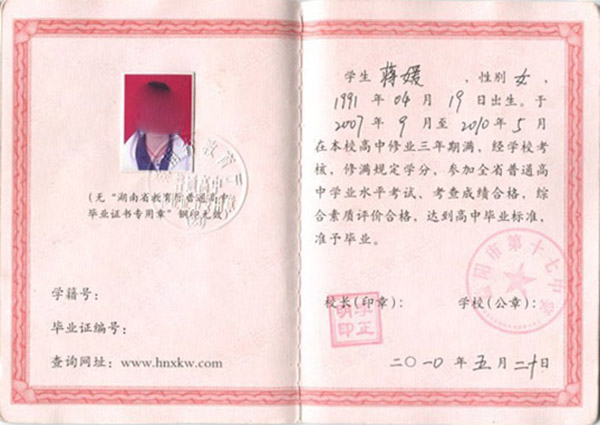 (无“湖南省教育厅普通高中
毕业证书专用章”钢印无效)
学籍号：
毕业证编号：
查询网址：www.hnxkw.com
学生 蒋媛 ，性别 女 ，
1991 年 04 月 19 日出生。于
2007 年 9 月至 2010 年 5 月
在本校高中修业三年期满，经学校考
核，修满规定学分，参加全省普通高
中学业水平考试、考查成绩合格，综
合素质评价合格，达到高中毕业标准，
准予毕业。
校长(印章)：
学校(公章)：
阳市第十七中学
二〇一〇 年 五 月 二十 日